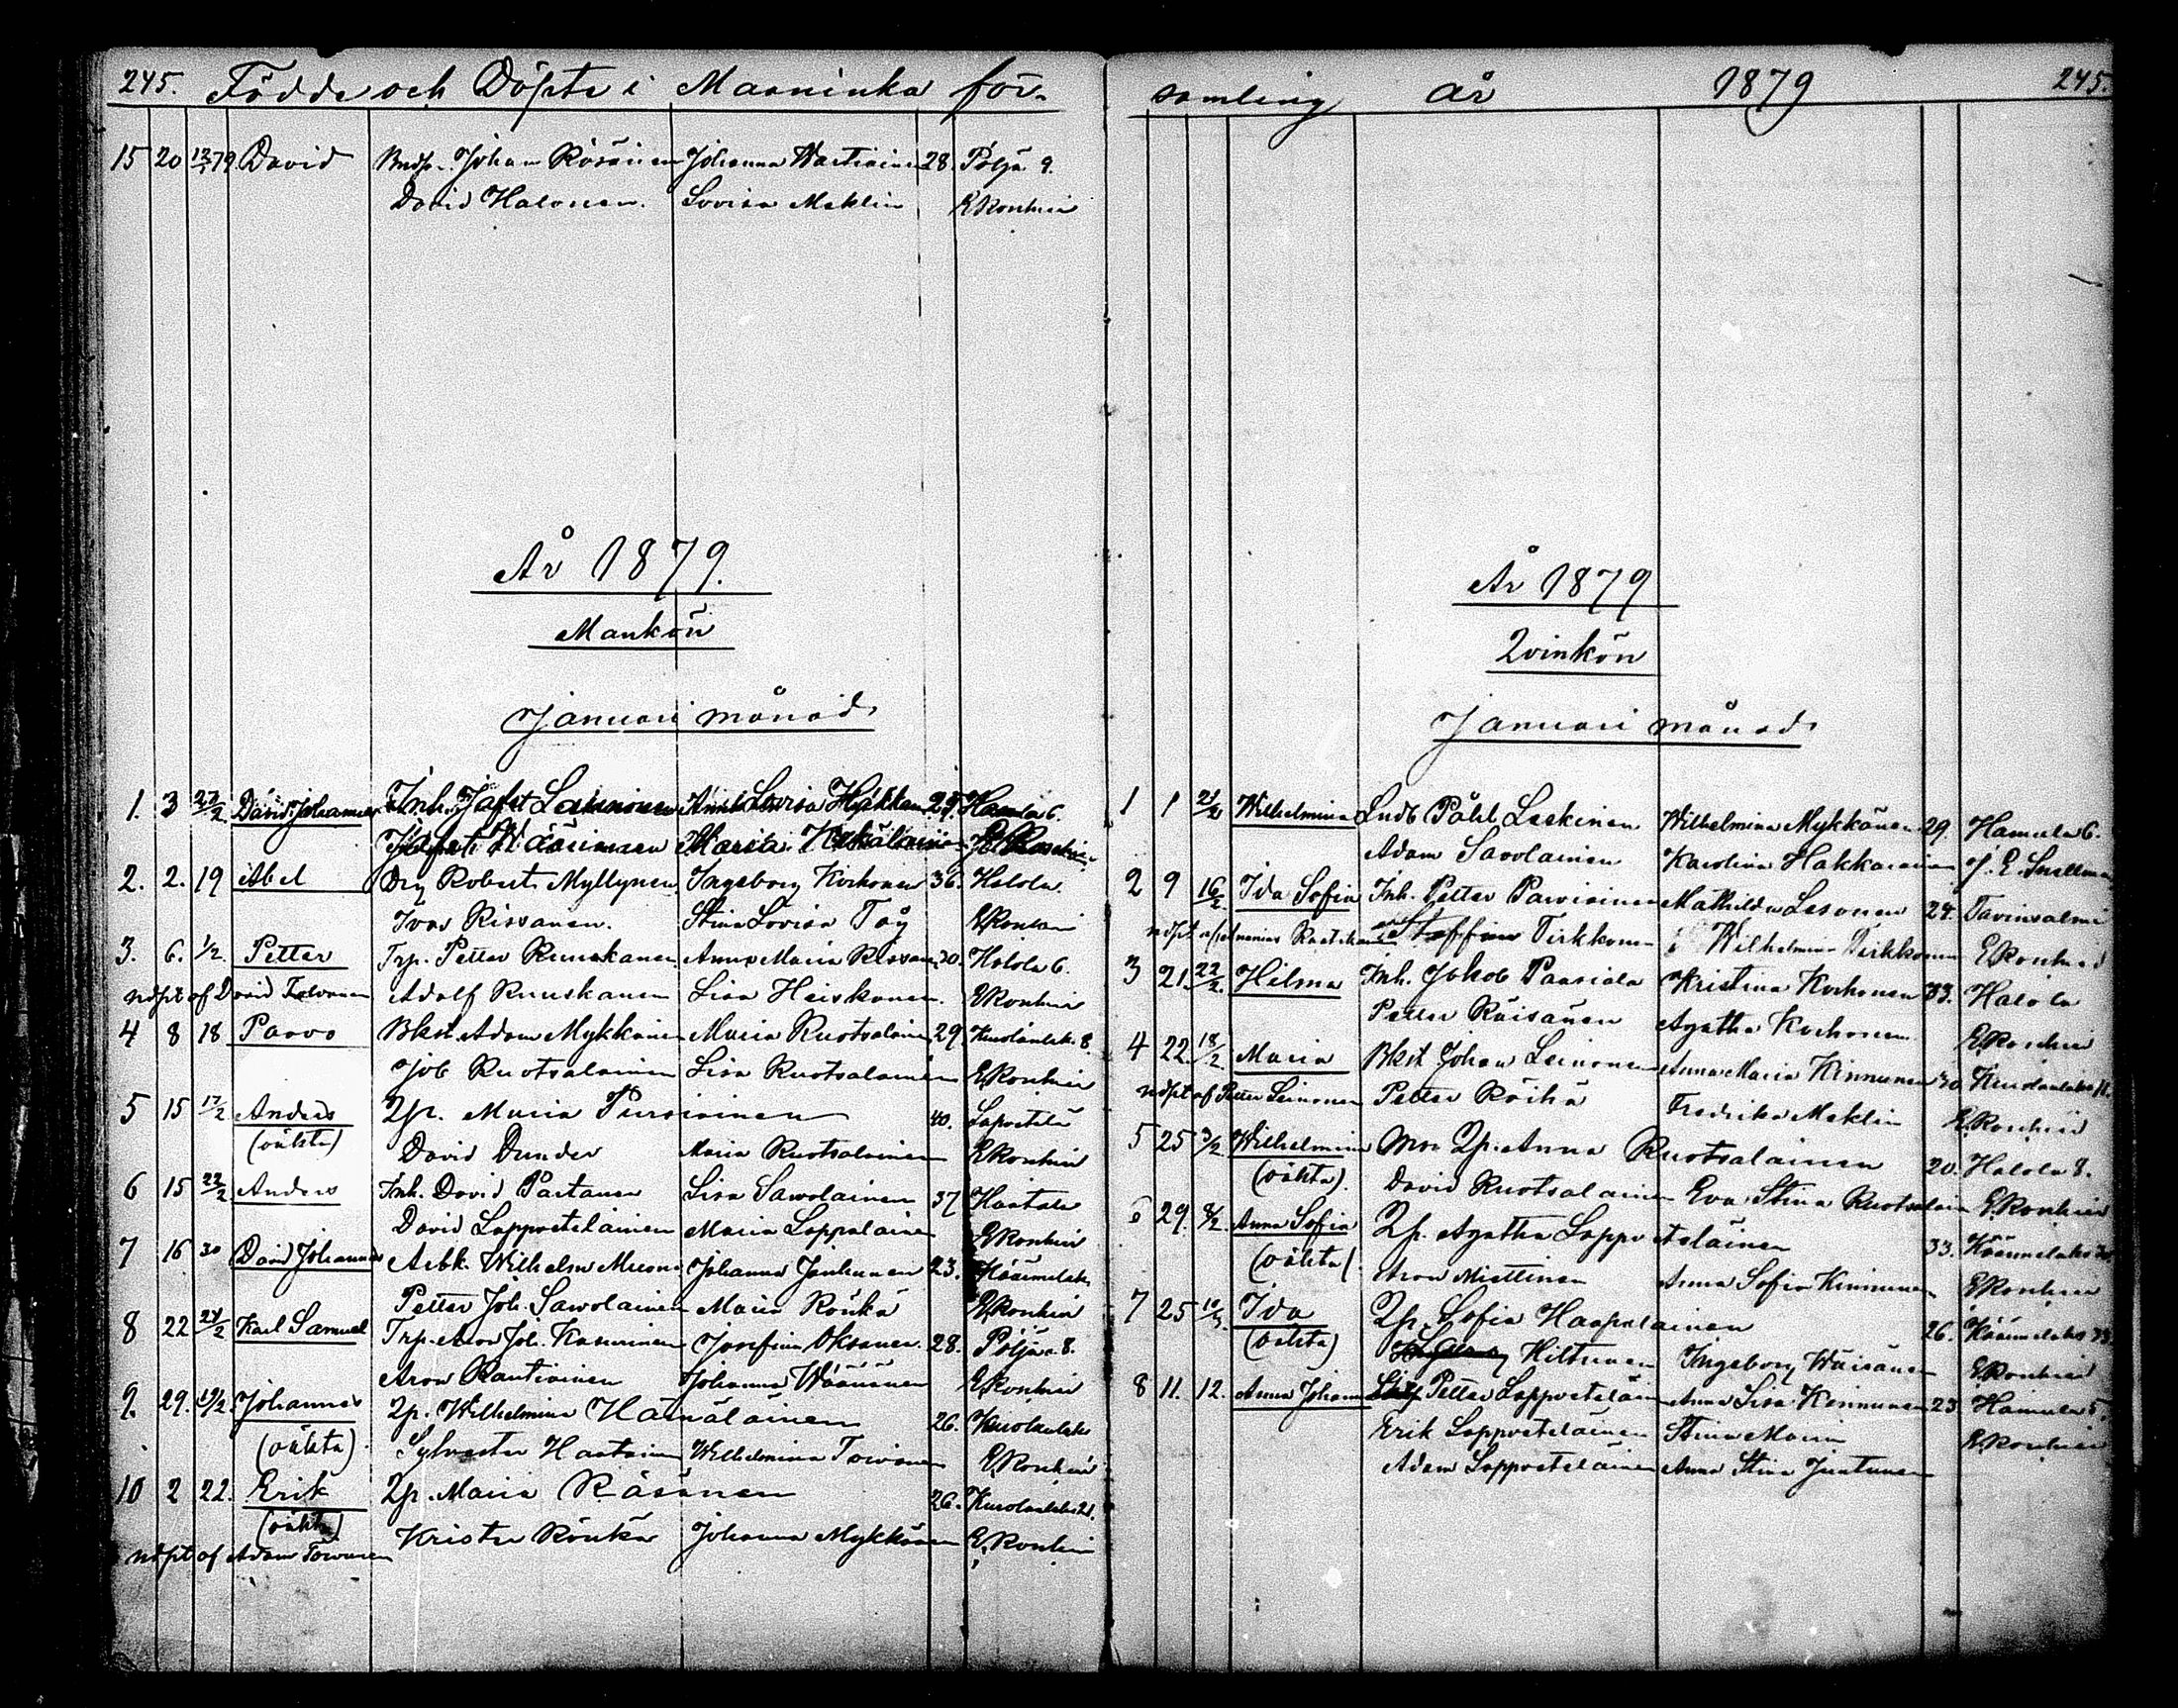 245. Födde och Döpte i Maaninka för-
15 20 12/1 79 David Bndsn. Johan Räsänen Johanna Wartiainen 28. Pöljä 9.
David Halonen. Lovisa Meklin E Ronkai
År 1879.
Mankön
Januari månad
1. 3 27/2 David Johannes Inh. Jafet Leinonen Anna Lovisa Hakkar 29. Hamula 6.
Jafet Maria
2. 2. 19 Abel Robert Myllynen Ingeborg Korhonen 36. Halola.
Ivar Rissanen. Stina Lovisa E Ronkai
3. 6. 1/2. Petter Trp. Petter Ruuskanen Anna Maria Rissanen 20. Halola 6.
ndpt af David Adolf Ruuskanen Lisa Heiskanen. E Ronkai
4 8 18 Paavo Bkst Adam Mykkänen Maria Ruotsalainen 29. 8.
Job Ruotsalainen Lisa Ruotsalainen E Ronkai
5 15 17/2 Anders Qp. Maria Pursiainen 40. Lapvetelä
(oäkta) David Dunder Maria Ruotsalainen E Ronkai
6 15 22/2 Anders Inh. David Partanen Lisa Sawolainen 37 Haatala
David Lappvetelainen Maria Lappalainen E Ronkai
7 16 30 David Johannes Arbk. Wilhelm Johanna Jauhunen 23. Käärmelaks
Petter Joh. Sawolainen Maria Rönkä E Ronkai
8 22 24/2 Karl Samuel Trp. Aron Joh. Kasurinen Josefina Oksanen. 28. Pöljä 8.
Aron Rautiainen Johanna Wäänänen E Ronkai
9. 29. 2/2 Johannes Qp. Wilhelmina Hämäläinen 26. Kurolanlaks
(oäkta) Sylvester Haatainen Wilhelmina E Ronkai
10 2 22. Erik Qp. Maria Räsänen 26. Kurolanlaks 21.
(oäkta)
ndpt af Adam Krister Rönkä Johanna Mykkänen E Ronkai
samling år 1879 245.
År 1879
Qvinkön
Januari månad
1 1 21/2 Wilhelmina Påhl Leskinen Wilhelmina Mykkänen 29. Hamula 6.
Adam Savolainen Karolina Hakkarainen J. E. Snellman
2 9 16/2 Ida Sofia Inh. Petter Parviainen Mathilda Lesonen 24. Tavinsalmi
ndpt af Ananias Raatikain Staffan Tirkkonen Wilhelmina Tirkkonen E Ronkai
3 21. 22/2 Hilma Inh. Jakob Paasiala Kristina Korhonen 33. Halola
Petter Räisänen Agatha Korhonen E Ronkai
4 22 18/2 Maria Bkst Johan Leinonen Anna Maria Kinnunen 30 Kurolanlaks 11.
ndpt af Petter Leinonen Petter Räihä Fredrika Meklin E Ronkai
5 25 3/2 Wilhelmina Qp. Anna Ruotsalainen 20. Halola 8.
(oäkta). David Ruotsalainen Eva Stina Ruotsalain E Ronkai
6 29. 8/2 Anna Sofia Qp. Agatha Lappvetelainen 33. Käärmelaks
(oäkta) Aron Miettinen Anna Sofia Kinnunen E Ronkai
7 25 Ida Qp. Sofia Haapalainen 26. Käärmelaks
(oäkta) Hiltunen Ingeborg Väisänen E Ronkai
8 11. 12. Anna Johanna Petter Lappvetelain Anna Lisa Kinnunen 23 Hamula 5.
Erik Lappvetelainen Stina Maria E Ronkai
Adam Lappvetelainen Anna Stina Juntunen